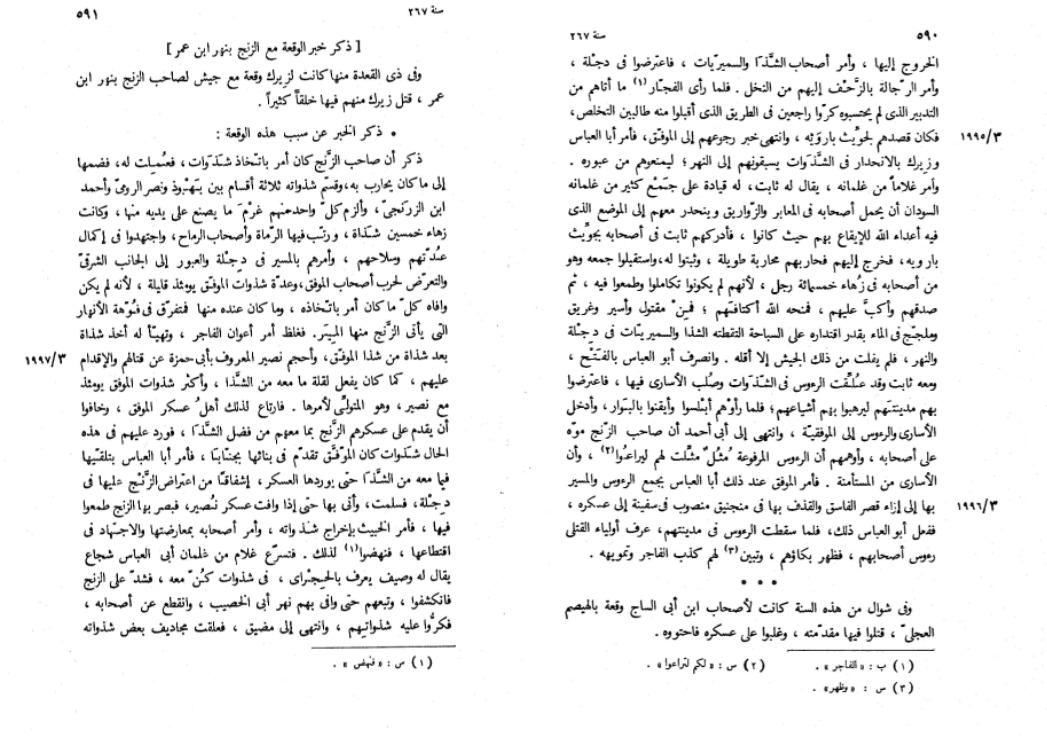 ٥٩٠
سنة ٢٦٧
الخروج إليها ، وأمر أصحاب الشَّذَا والسميريّات ، فاعترضوا فى دجلة ،
وأمر الرّجالة بالزَّحْف إليهم من النخل . فلما رأى الفجّار (١) ما أتاهم من
التدبير الذى لم يحتسبوه كرّوا راجعين فى الطريق الذى أقبلوا منه طالبين التخلص،
فكان قصدهم لجويْث بارويْه ، وانتهى خبر رجوعهم إلى الموفق، فأمر أبا العباس
١٩٩٥/٣
وزيرك بالانحدار فى الشَّذَوات يسبقونهم إلى النهر ؛ ليمنعوهم من عبوره .
وأمر غلاماً من غلمانه ، يقال له ثابت، له قيادة على جَمْع كثير من غلمانه
السودان أن يحمل أصحابه فى المعابر والزّواريق وينحدر معهم إلى الموضع الذى
فيه أعداء الله للإيقاع بهم حيث كانوا ، فأدركهم ثابت فى أصحابه بجويْث
بارويه، فخرج إليهم فحاربهم محاربة طويلة ، وثبتوا له، واستقبلوا جمعه وهو
من أصحابه فى زُهاء خمسمائة رجل ، لأنهم لم يكونوا تكاملوا وطمعوا فيه ، ثم
صدقهم وأكبّ عليهم ، فمنحه الله أكتافهم ؛ فمِنْ مقتول وأسير وغريق
وملجّج فى الماء بقدر اقتداره على السباحة التقطته الشذا والسميريّات فى دِجْلة
والنهر ، فلم يفلت من ذلك الجيش إلا أقله . وانصرف أبو العباس بالفَتْح ،
ومعه ثابت وقد عُلِّقت الرءوس فى الشَّذَوات وصُلب الأسارى فيها ، فاعترضوا
بهم مدينتَهم ليرهبوا بهم أشياعهم؛ فلما رأوْهم أبْلسوا وأيقنوا بالبَوار، وأدخل
الأسارى والرءوس إلى الموفقيّة ، وانتهى إلى أبى أحمد أن صاحب الزّنج موّه
على أصحابه ، وأوهمهم أن الرءوس المرفوعة مُثُلٌ مثِّلت لهم ليراعُوا(٢) ، وأن
الأسارى من المستأمنة . فأمر الموفق عند ذلك أبا العباس بجمع الرءوس والمسير
بها إلى إزاء قصر الفاسق والقذف بها فى منجنيق منصوب فى سفينة إلى عسكره ،
١٩٩٦/٣
ففعل أبو العباس ذلك، فلما سقطت الرءوس فى مدينتهم، عرف أولياء القتلى
رءوس أصحابهم ، فظهر بكاؤهم ، وتبين(٣) لهم كذب الفاجر وتمويهه .
• • •
وفى شوال من هذه السنة كانت لأصحاب ابن أبى الساج وقعة بالهيصم
العجلىّ ، قتلوا فيها مقدّمته ، وغلبوا على عسكره فاحتووه.
(١) ب : « الفاجر » .
(٢) س : « لكم لتراعوا » .
(٣) س : « وظهر » .
٥٩١
سنة ٢٦٧
[ ذكر خبر الوقعة مع الزنج بنهر ابن عمر ]
وفى ذى القعدة منها كانت لزيرك وقعة مع جيش لصاحب الزنج بنهر ابن
عمر ، قتل زيرك منهم فيها خلقاً كثيراً .
• ذكر الخبر عن سبب هذه الوقعة :
ذكر أن صاحب الزَّنج كان أمر باتّخاذ شَذَوات، فعُمِلت له، فضمها
إلى ما كان يحارب به، وقسّم شذواته ثلاثة أقسام بين بَهْبُوذ ونصر الرومىّ وأحمد
ابن الزرنجىّ، وألزم كلّ واحد منهم غرْمَ ما يصنع على يديه منها ، وكانت
زهاء خمسين شَذاة ، ورتب فيها الرّماة وأصحاب الرماح، واجتهدوا فى إكمال
عُدّتهم وسلاحهم ، وأمرهم بالمسير فى دِجْلة والعبور إلى الجانب الشرقىّ
والتعرض لحرب أصحاب الموفق، وعدّة شذوات الموفّق يومئذ قليلة ، لأنه لم يكن
وافاه كلّ ما كان أمر باتّخاذه ، وما كان عنده منها فمتفرّق فى فُوّهة الأنهار
التى يأتى الزّنج منها المِيَر. فغلظ أمر أعوان الفاجر ، وتهيّأ له أخذ شذاة
بعد شذاة من شذا الموفّق، وأحجم نصير المعروف بأبى حمزة عن قتالهم والإقدام
١٩٩٧/٣
عليهم ، كما كان يفعل لقلة ما معه من الشَّذا ، وأكثر شذوات الموفق يومئذ
مع نصير، وهو المتولّى لأمرها . فارتاع لذلك أهلُ عسكر الموفق ، وخافوا
أن يقدم على عسكرهم الزَّنج بما معهم من فضل الشَّذَا ، فورد عليهم فى هذه
الحال شَذَوات كان الموفَّق تقدّم فى بنائها بجنّابَا ، فأمر أبا العباس بتلقّيها
فيما معه من الشَّذَا حتى يوردها العسكر ، إشفاقًا من اعتراض الزَّنْج عليها فى
دِجْلة، فسلمت، وأتى بها حتى إذا وافت عسكر نُصير، فبصر بها الزنج طمعوا
فيها ، فأمر الخبيث بإخراج شَذواته ، وأمر أصحابه بمعارضتها والاجتهاد فى
اقتطاعها ، فنهضوا(١) لذلك . فتسرّع غلام من غلمان أبى العباس شجاع
يقال له وصيف يعرف بالحِجْراى ، فى شذوات كُنّ معه ، فشدّ على الزنج
فانكشفوا ، وتبعهم حتى وافى بهم نهر أبى الخصيب ، وانقطع عن أصحابه ،
فكرُّوا عليه شذواتِهم ، وانتهى إلى مضيق ، فعلقت مجاديف بعض شذواته
(١) س : « فنهض » .